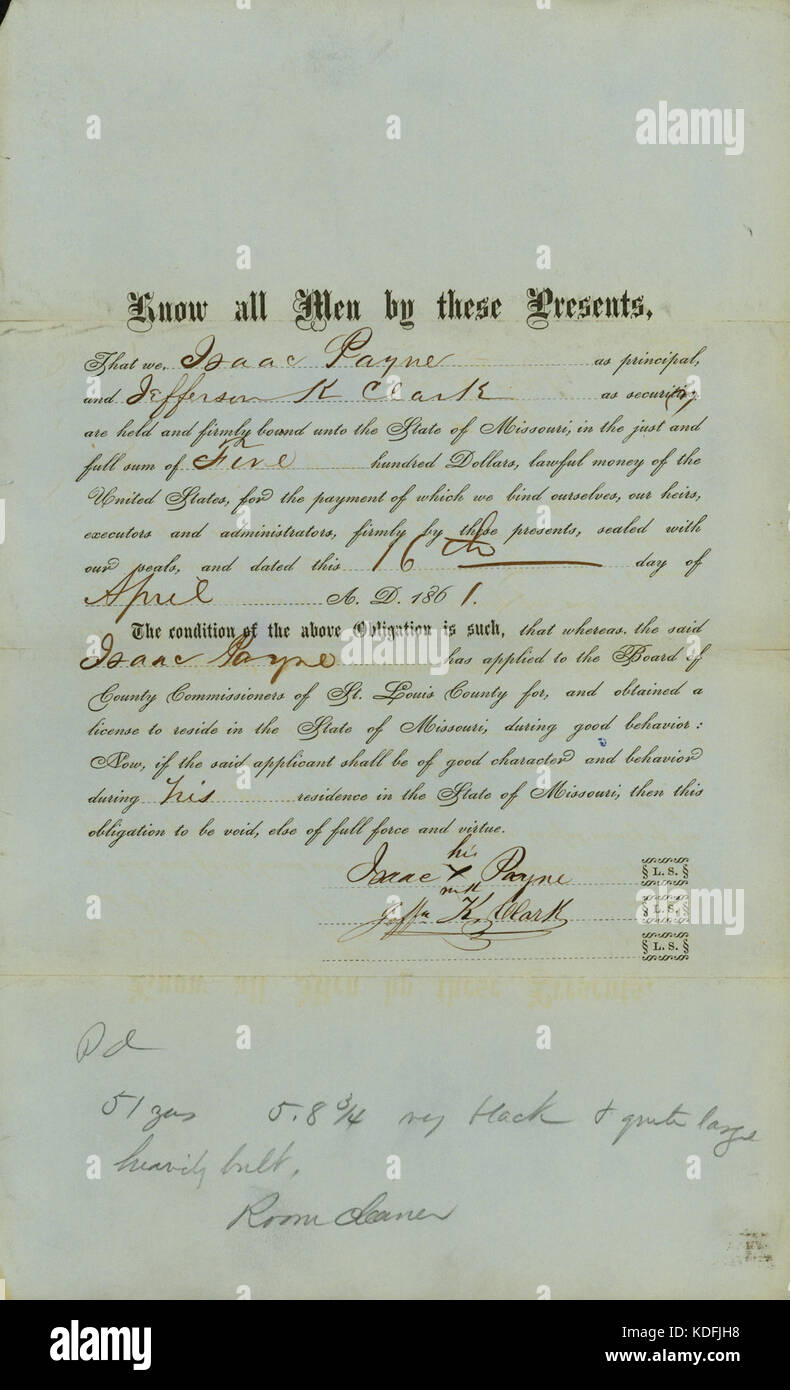 Know all Men by these Presents,
That we, Isaac Payne as principal,
and Jefferson K Clark as security
are held and firmly bound unto the State of Missouri, in the just and
full sum of Five hundred Dollars, lawful money of the
United States, for the payment of which we bind ourselves, our heirs,
executors and administrators, firmly by these presents, sealed with
our seals, and dated this 16th day of
April A. D. 1861.
The condition of the above Obligation is such, that whereas. the said
Isaac Payne has applied to the Board of
County Commissioners of St. Louis County for, and obtained a
license to reside in the State of Missouri, during good behavior:
Now, if the said applicant shall be of good character and behavior
during his residence in the State of Missouri, then this
obligation to be void, else of full force and virtue.
his
Isaac X Payne L. S.
mark
Jeffn K. Clark L. S.
L. S.
Pd
51 yrs 5.8 3/4 very black & quite large
heavily built.
Room cleaner
alamy
alamy
Image ID: KDFJH8
www.alamy.com